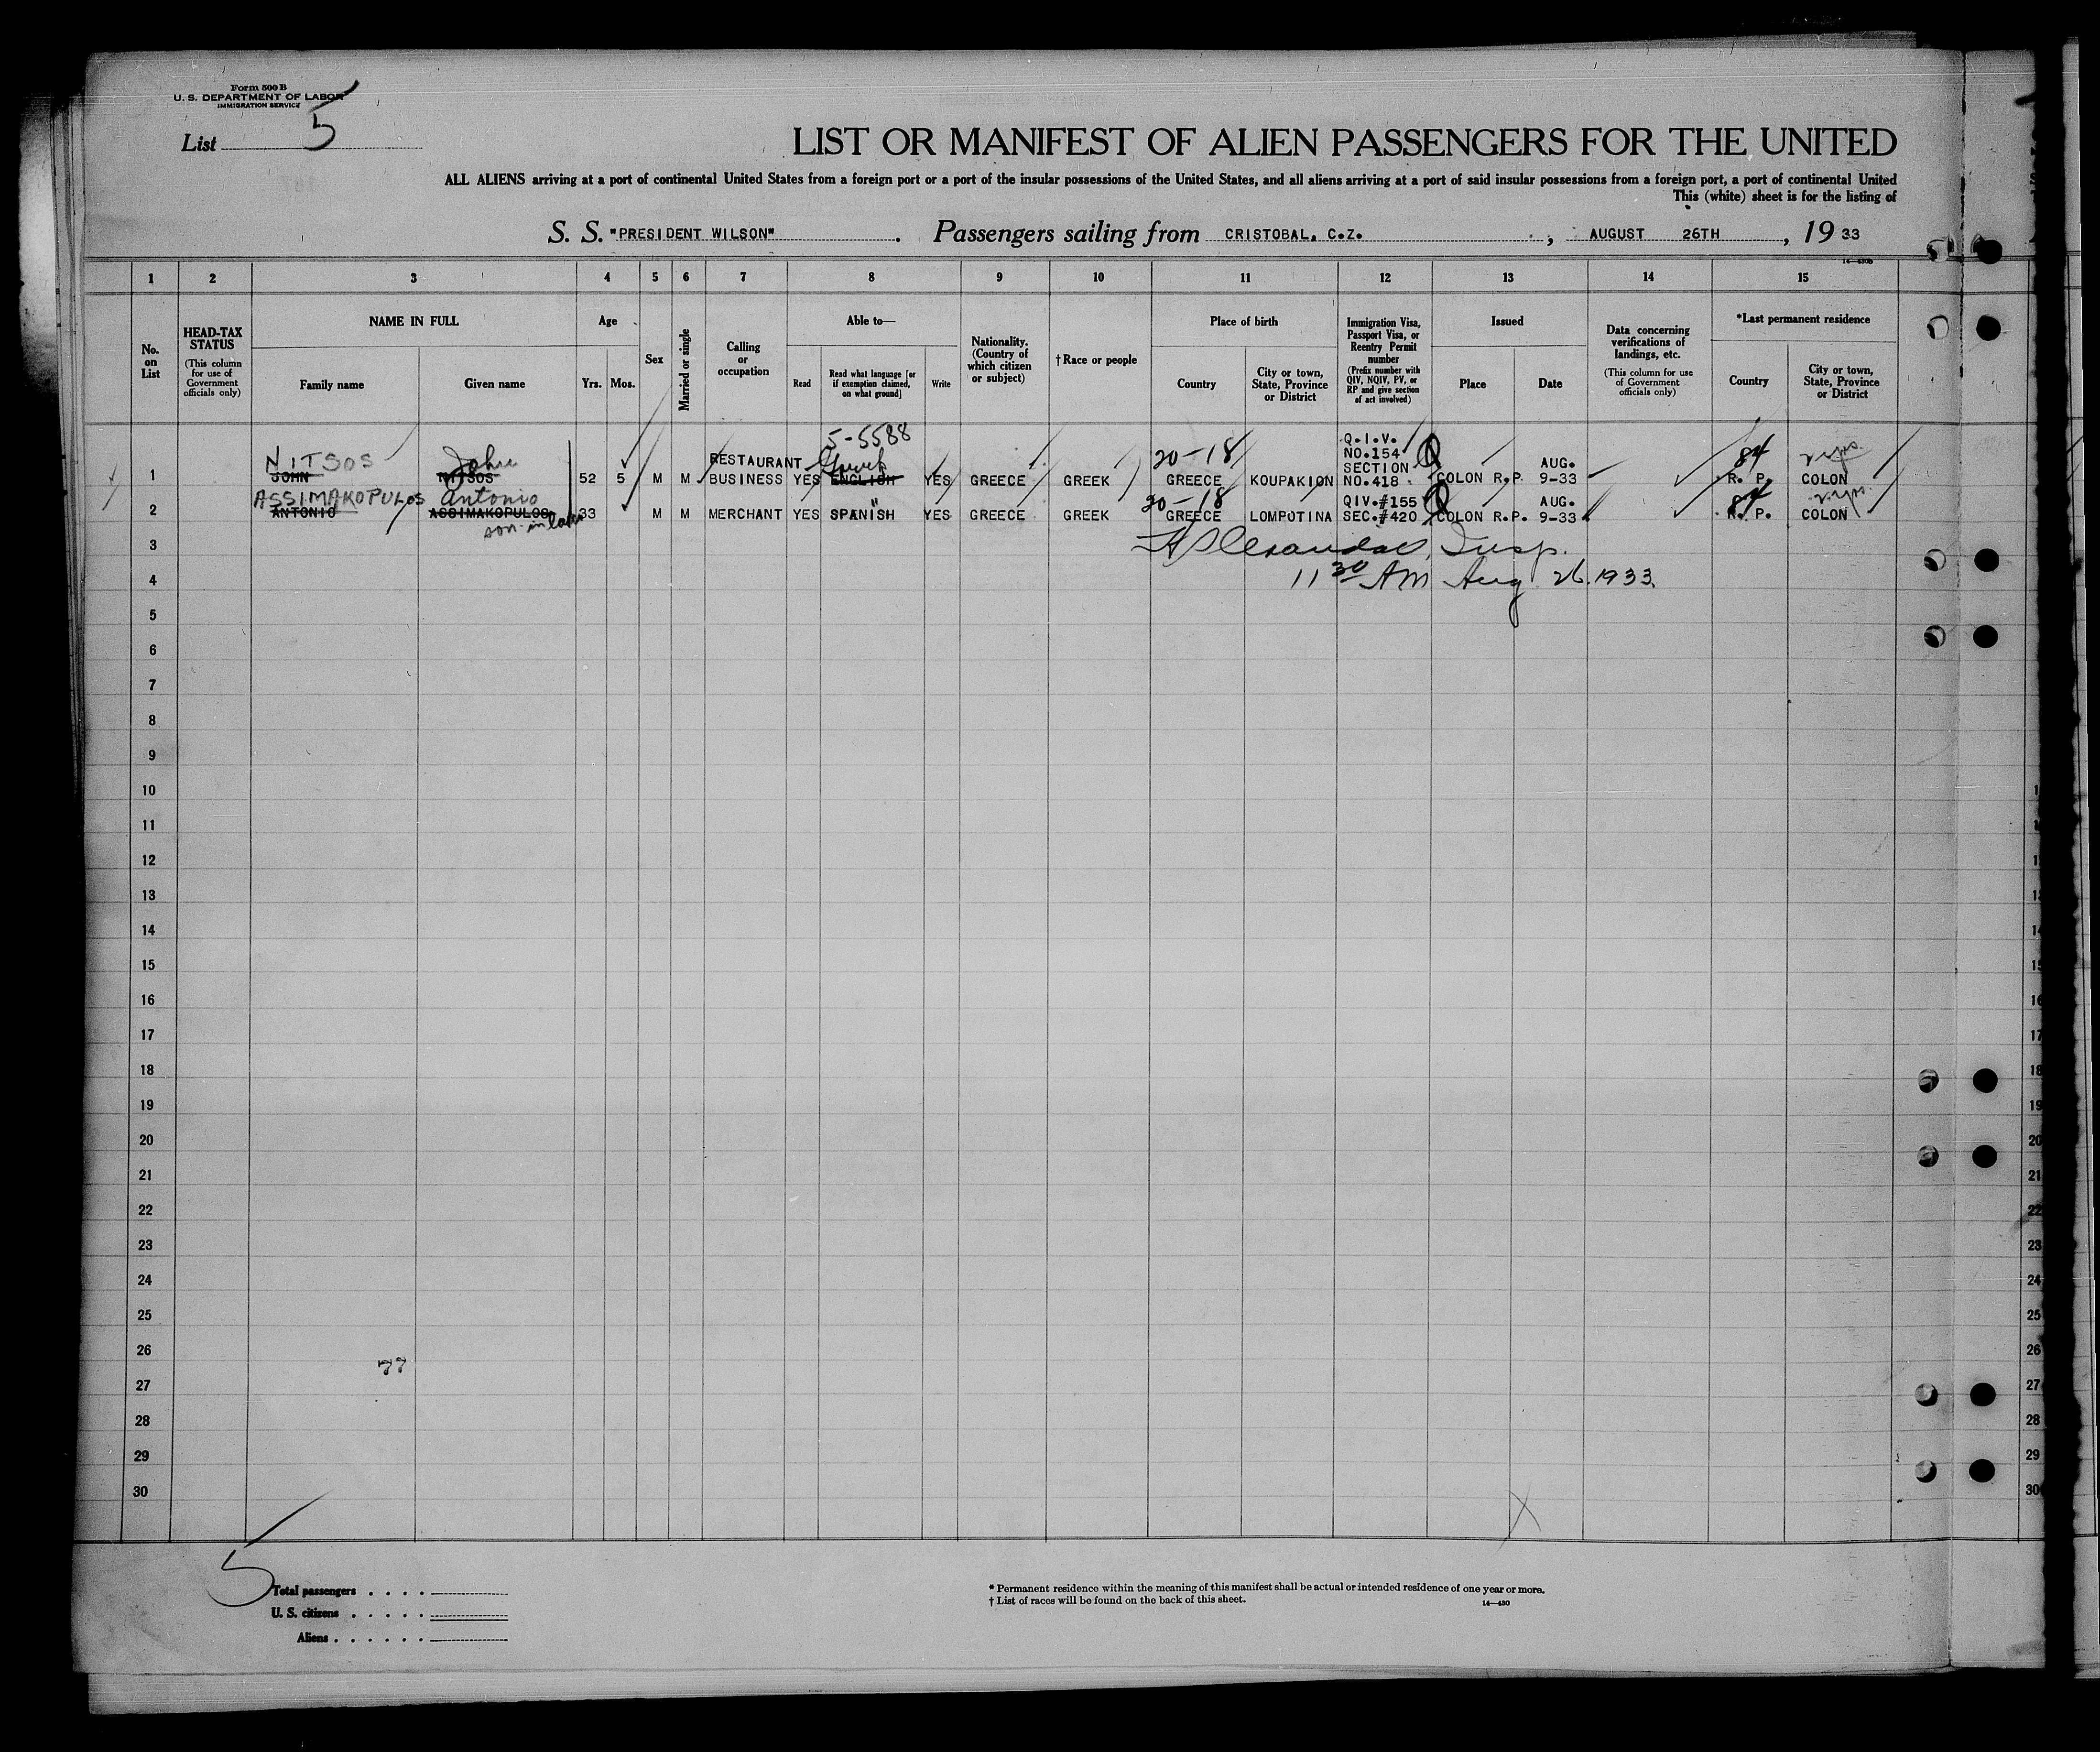 Form 500 B
U. S. DEPARTMENT OF LABOR
IMMIGRATION SERVICE
List 5
LIST OR MANIFEST OF ALIEN PASSENGERS FOR THE UNITED
ALL ALIENS arriving at a port of continental United States from a foreign port or a port of the insular possessions of the United States, and all aliens arriving at a port of said insular possessions from a foreign port, a port of continental United
This (white) sheet is for the listing of
S. S. "PRESIDENT WILSON" . Passengers sailing from CRISTOBAL, C.Z. , AUGUST 26TH , 19 33
1 2 3 4 5 6 7 8 9 10 11 12 13 14 15
No. on List
HEAD-TAX STATUS
(This column for use of Government officials only)
NAME IN FULL
Family name Given name
Age
Yrs. Mos.
Sex
Married or single
Calling or occupation
Able to—
Read
Read what language [or if exemption claimed, on what ground]
Write
Nationality. (Country of which citizen or subject)
† Race or people
Place of birth
Country
City or town, State, Province or District
Immigration Visa, Passport Visa, or Reentry Permit number
(Prefix number with QIV, NQIV, PV, or RP and give section of act involved)
Issued
Place Date
Data concerning verifications of landings, etc.
(This column for use of Government officials only)
*Last permanent residence
Country
City or town, State, Province or District
5-5588
NITSOS John RESTAURANT Greek 20-18 Q.I.V. NO.154 SECTION Q AUG. 84
1 JOHN NITSOS 52 5 M M BUSINESS YES ENGLISH YES GREECE GREEK GREECE KOUPAKION NO.418 COLON R.P. 9-33 R. P. COLON
ASSIMAKOPULOS Antonio 20-18 QIV.#155 Q AUG. 84
2 ANTONIO ASSIMAKOPULOS 33 M M MERCHANT YES SPANISH " YES GREECE GREEK GREECE LOMPOTINA SEC.#420 COLON R.P. 9-33 R. P. COLON
son-in-law
3 Insp.
4 11 30 AM Aug 26. 1933.
5
6
7
8
9
10
11
12
13
14
15
16
17
18
19
20
21
22
23
24
25
26
77
27
28
29
30
5
Total passengers . . . .
U. S. citizens . . . . .
Aliens . . . . . .
* Permanent residence within the meaning of this manifest shall be actual or intended residence of one year or more.
† List of races will be found on the back of this sheet.
14—430